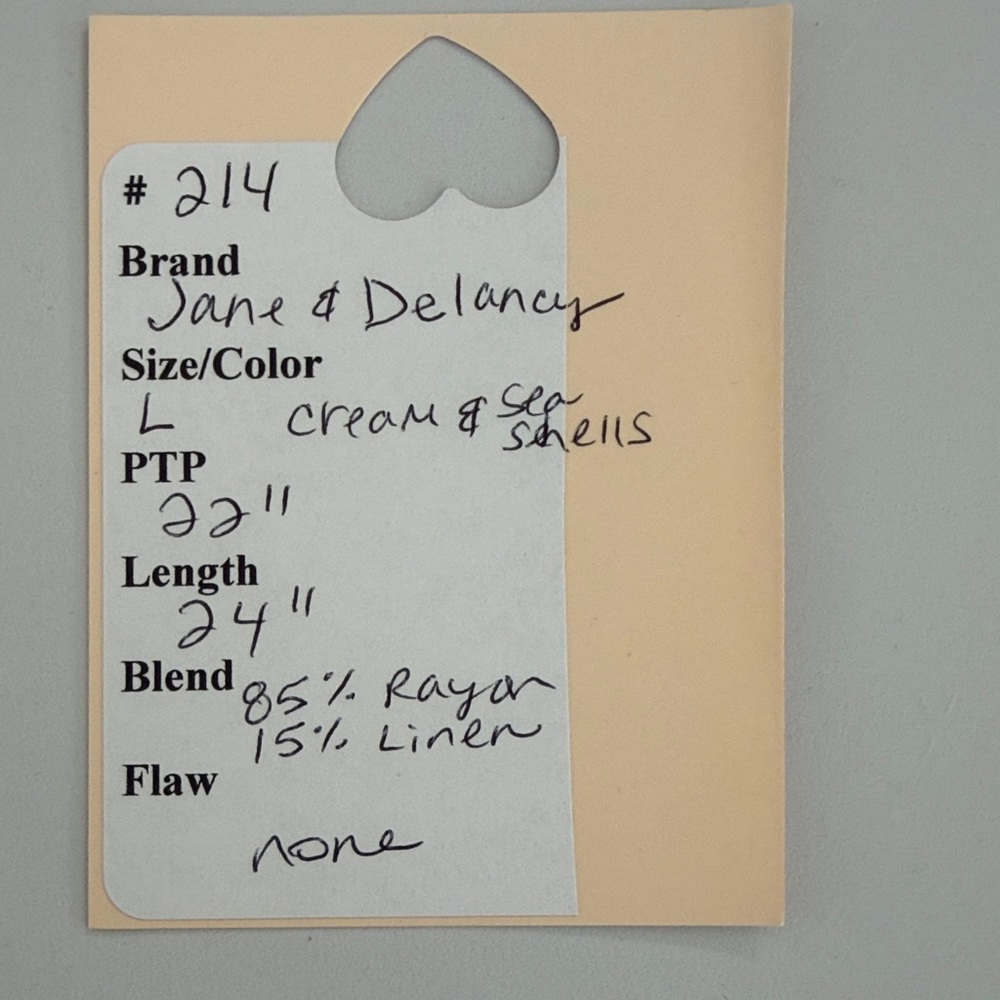 # 214
Brand
Jane & Delancey
Size/Color
L cream & sea
shells
PTP
22"
Length
24"
Blend 85% Rayon
15% Linen
Flaw
none